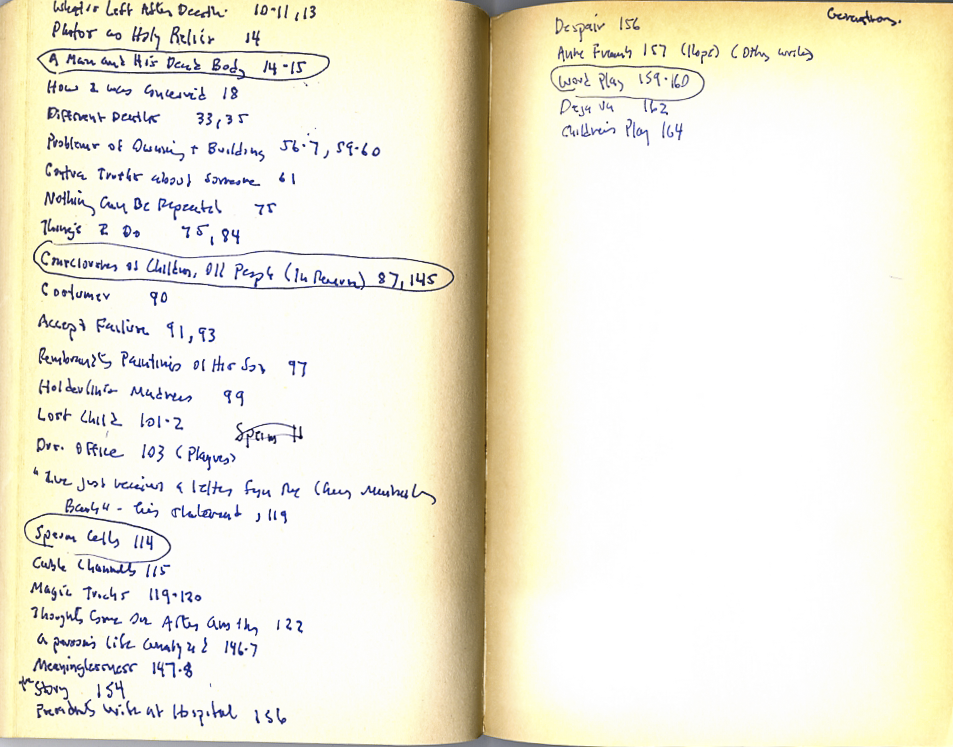 What is Left After Death 10-11, 13
Photos as Holy Relics 14
A Man and His Dead Body 14-15
How I was Conceived 18
Different Deaths 33, 35
Problems of Owning + Building 56-7, 59-60
Contra Truths about Someone 61
Nothing Can Be Repeated 75
Things I Do 75, 84
Consciousness of Children, Old People (In Reverse) 87, 145
Costumer 90
Accept Failure 91, 93
Rembrandt's Paintings of His Son 97
Holderlin's Madness 99
Lost Child 101-2
Sperm 11
Drs. Office 103 (Plaques)
"I've just received a letter from the Chase Manhattan
Bank" - his statement, 119
Sperm Cells 114
Cable Channels 115
Magic Tricks 119-120
Thoughts Come One After Another 122
A person's life analyzed 146-7
Meaninglessness 147-8
Story 154
Presidents Wife at Hospital 156
Generations.
Despair 156
Anne Frank 157 (Hope) (Other writers)
Word Play 159-160
Deja Vu 162
Children's Play 164